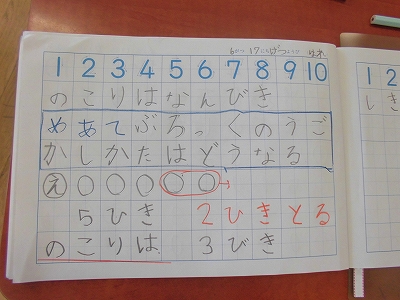 6がつ17にち げつようび はれ
1 2 3 4 5 6 7 8 9 10
のこりはなんびき
めあて ぶろっくのうご
かしかたはどうなる
え ○ ○ ○ ○ ○ →
5ひき 2ひきとる
のこりは 3びき
1 2
しき